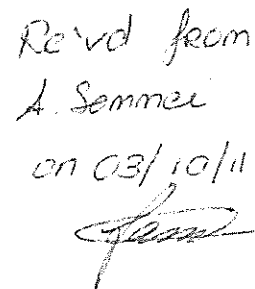 Re'vd from
A. Sommei
on 03/10/11